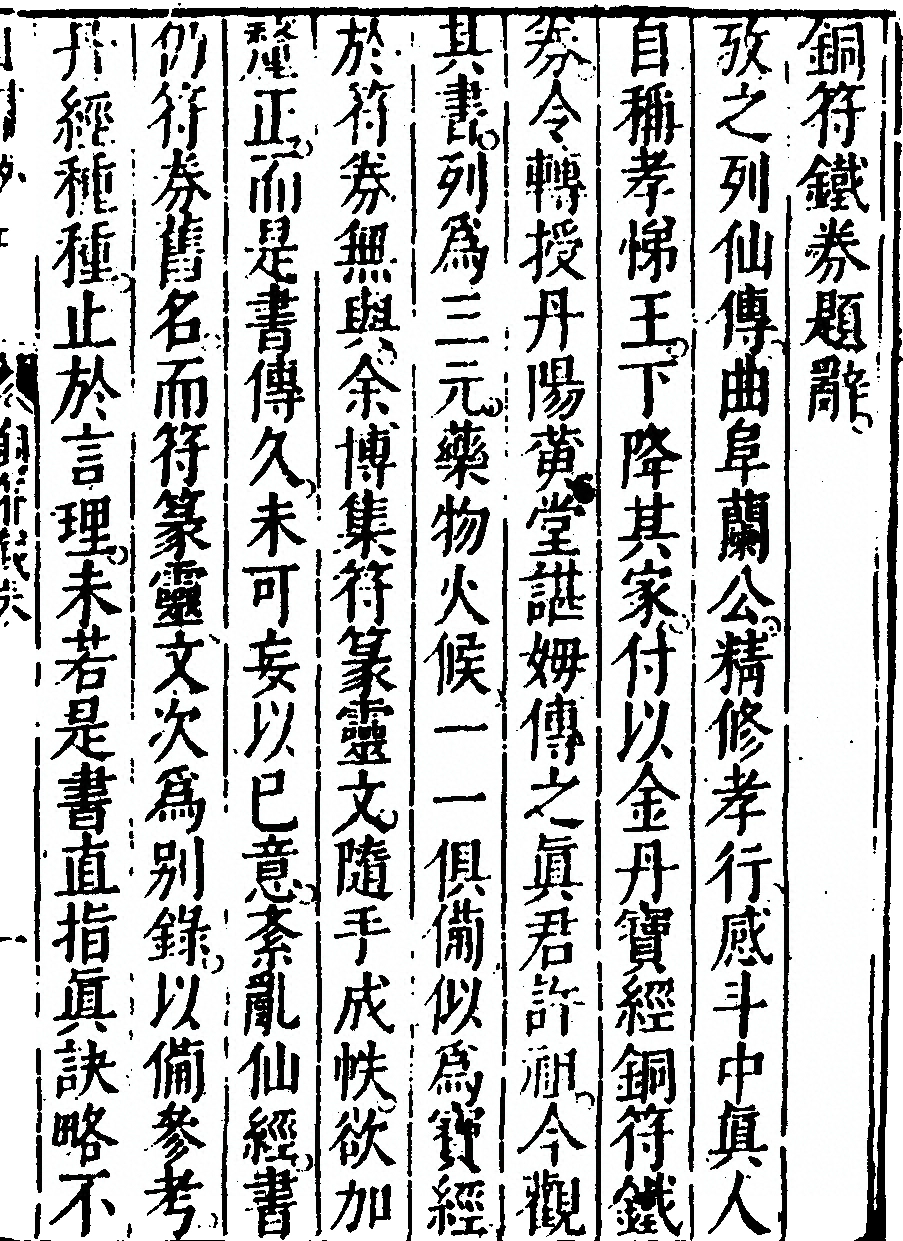 銅符鐵券題辭
攷之列仙傳曲阜蘭公精修孝行感斗中眞人
自稱孝悌王下降其家付以金丹寶經銅符鐵
券令轉授丹陽黄堂諶姆傳之眞君許祖今觀
其書列爲三元藥物火候一一俱備似爲寶經
於符券無與余博集符篆靈文隨手成帙欲加
釐正而是書傳久未可妄以已意紊亂仙經書
仍符券舊名而符篆靈文次爲别錄以備參考
丹經種種止於言理未若是書直指眞訣略不